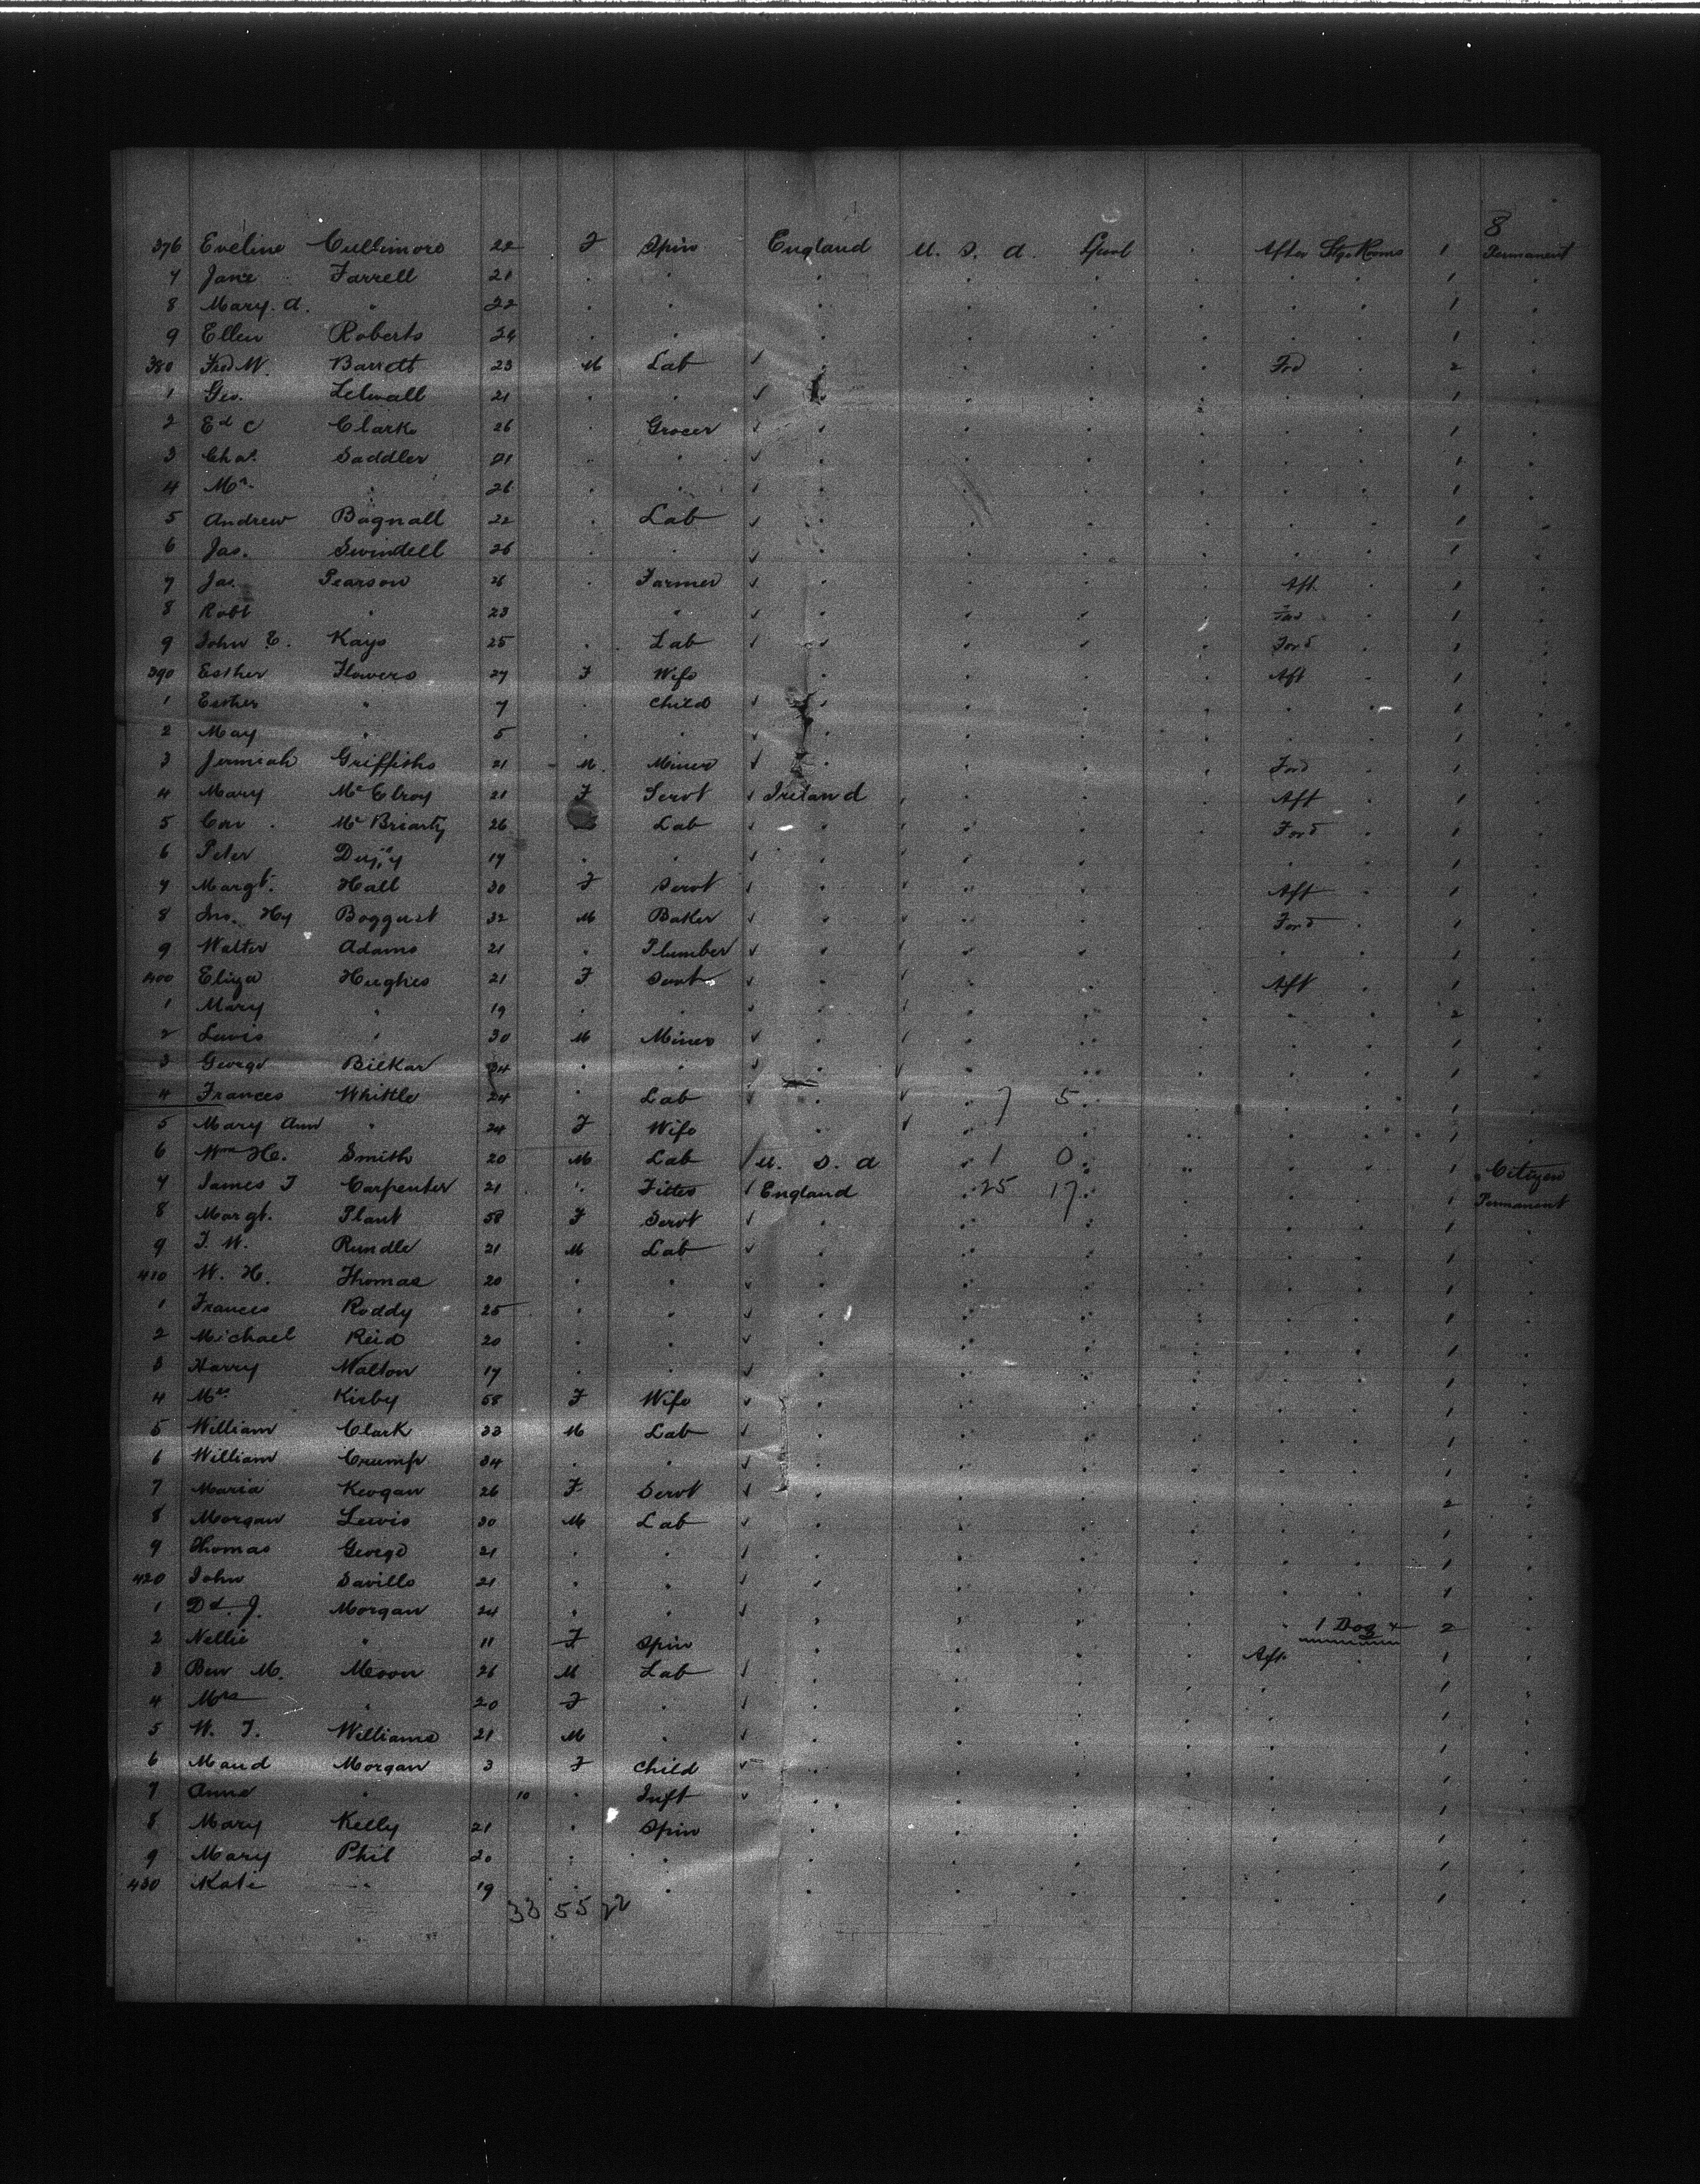 8
376 Eveline Cullimore 22 F Spin England U. S. A. Lpool . After Stge Rooms 1 Permanent
7 Jane Farrell 21 . . . . . . . 1 .
8 Mary. A. " 22 . . . . . . . 1 .
9 Ellen Roberts 24 . . . . . . . 1 .
380 Fred W. Barrett 23 M Lab . . . . Frd . 2 .
1 Geo. 21 . . . . . . . 1 .
2 Ed C Clark 26 . Grocer . . . . . 1 .
3 Chas. Saddler 21 . . . . . . . 1 .
4 " 26 . . . . . . . 1 .
5 Andrew Bagnall 22 . Lab . . . . . 1 .
6 Jas. Swindell 26 . . . . . . . 1 .
7 Jas. Pearson 26 . Farmer . . . . Aft . 1 .
8 Robt " 23 " . . . . . 1 .
9 John E. Kays 25 . Lab . . . . Ford . 1 .
390 Esther Flowers 27 F Wife . . . . Aft . 1 .
1 Esther " 7 . Child . . . . . 1 .
2 May " 5 . . . . . . . 1 .
3 Jermiah Griffiths 21 M. Miner . . . . Ford . 1 .
4 Mary McElroy 21 F Servt Ireland . . . Aft . 1 .
5 Con McBriarty 26 Lab . . . . Ford . 1 .
6 Peter Duffy 17 . . . . . . . 1 .
7 Margt. Hall 30 F Servt . . . . Aft . 1 .
8 Jno. Hy Boggust 32 M Baker . . . . Ford . 1 .
9 Walter Adams 21 " Plumber . . . . . 1 .
400 Eliza Hughes 21 F Servt . . . . Aft . 1 .
1 Mary " 19 . . . . . . . 2 .
2 Lewis " 30 M Miner . . . . . 1 .
3 George Bilkar 34 . . . . . . . 1 .
4 Frances Whittle 24 . Lab . 7 5 . . . 1 .
5 Mary Ann " 24 F Wife . . . . . 1 .
6 Wm He. Smith 20 M Lab U. S. A 1 0 . . . 1 Citizen
7 James T Carpenter 21 " Fitter England 25 17 . . . 1 Permanent
8 Margt. Plant 58 F Servt . . . . . 1 .
9 T. W. Rundle 21 M Lab . . . . . 1 .
410 W. H. Thomas 20 . . . . . . . 1 .
1 Frances Roddy 25 . . . . . . . 1 .
2 Michael Reid 20 . . . . . . . 1 .
3 Harry Walton 17 . . . . . . . 1 .
4 Mrs. Kirby 58 F Wife . . . . . 1 .
5 William Clark 33 M Lab . . . . . 1 .
6 William Crump 34 . . . . . . . 1 .
7 Maria Keogan 26 F Servt . . . . . 2 .
8 Morgan Lewis 30 M Lab . . . . . 1 .
9 Thomas George 21 . . . . . . . 1 .
420 John Saville 21 . . . . . . . 1 .
1 Dd. J. Morgan 24 . . . . . . 1 Dog + 2 .
2 Nellie " 11 F Spin . . . . Aft . 1 .
3 Ben M. Moon 26 M Lab . . . . . 1 .
4 Mrs " 20 F . . . . . . 1 .
5 W. T. Williams 21 M . . . . . . 1 .
6 Maud Morgan 3 F Child . . . . . 1 .
7 Anne " 10 . Inft . . . . . 1 .
8 Mary Kelly 21 . Spin . . . . . 1 .
9 Mary Phil 20 . . . . . . . 1 .
430 Kate " 19 . . . . . . . 1 .
33 55 22